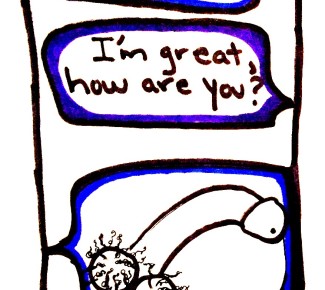 I'm great,
how are you?